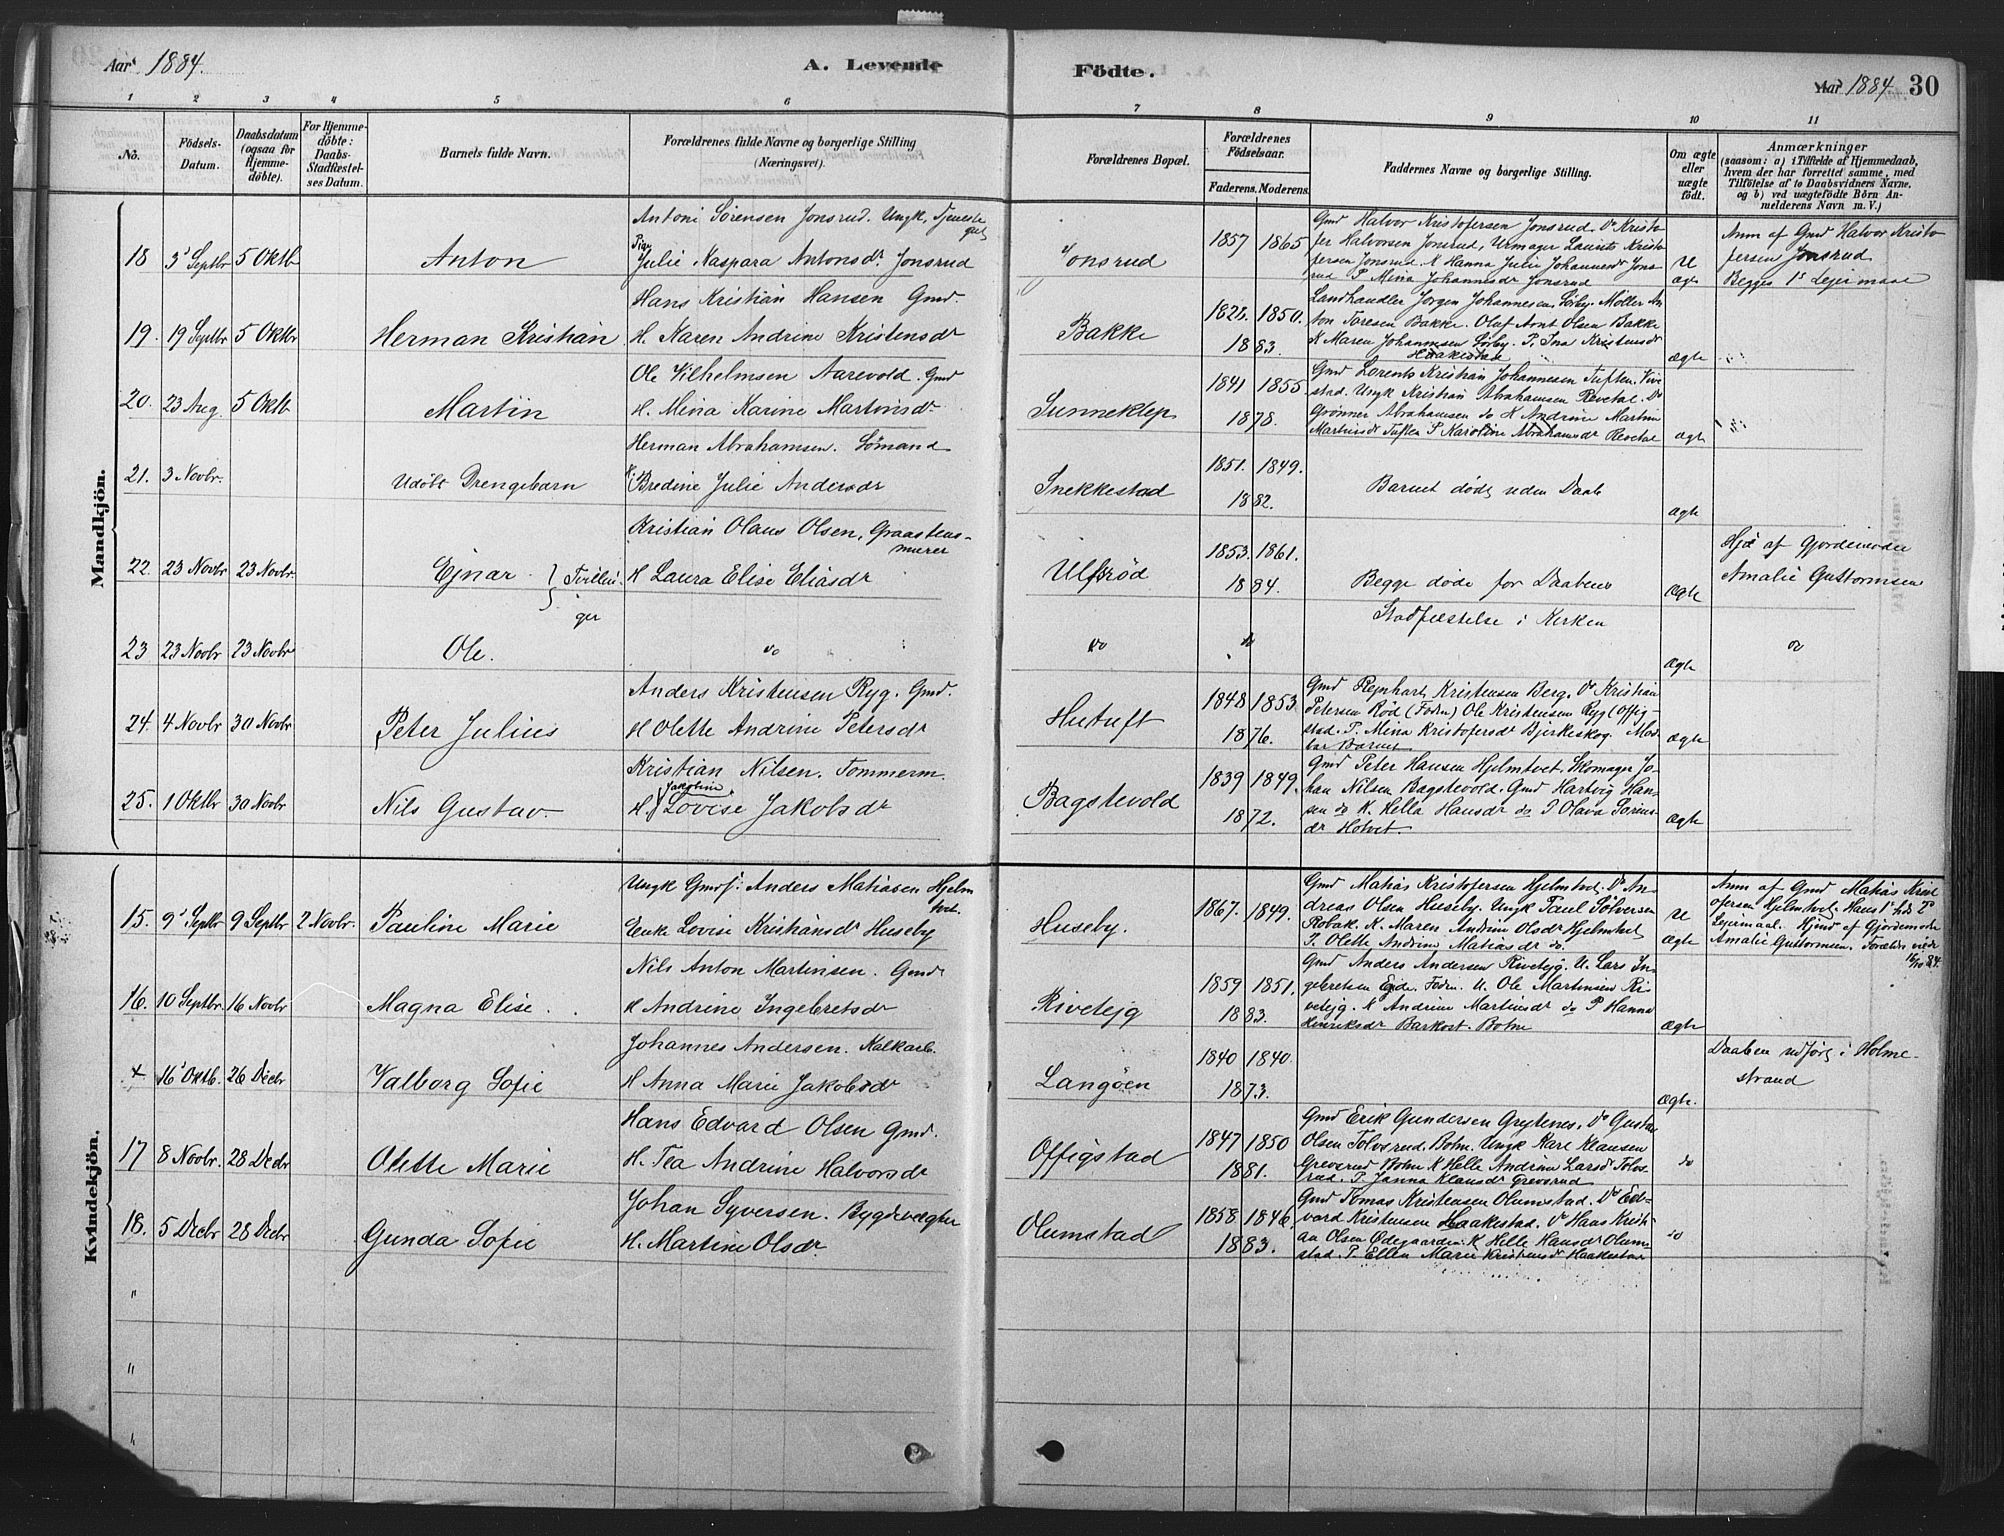 Aar 1884.
A. Levende
Födte.
Aar 1884. 30
1 2 3 4 5 6 7 8 9 10 11
No.
Födsels-
Datum.
Daabsdatum
(ogsaa for
Hjemme-
döbte).
For Hjemme-
döbte:
Daabs-
Stadfæstel-
ses Datum.
Barnets fulde Navn.
Forældrenes fulde Navne og borgerlige Stilling
(Næringsvei).
Forældrenes Bopæl.
Forældrenes
Födselsaar.
Faderens. Moderens.
Faddernes Navne og borgerlige Stilling.
Om ægte
eller
uægte
födt.
Anmærkninger
(saasom: a) i Tilfælde af Hjemmedaab,
hvem der har forrettet samme, med
Tilföielse af to Daabsvidners Navne,
og b) ved uægtefödte Börn An-
melderens Navn m. V.)
Mandkjön.
18 3 Septbr 5 Oktb Anton
Antoni Sörensen Jonsrud. Ungk, Tjeneste
gut
Pige
Julie Kaspara Antonsdr Jonsrud
Jonsrud
1857 1865
Gmd Halvor Kristofersen Jonsrud. Do Kristo-
fer Halvorsen Jonsrud, Urmager Laurits Kristo-
fersen Jonsrud K Hanna Julie Johannesdr Jons-
rud P Mina Johannesdr Jonsrud
U
ægte
Anm af Gmd Halvor Kristo
fersen Jonsrud
Begges 1s Lejermaal
19. 19 Septbr 5 Oktbr Herman Kristian
Hans Kristian Hansen Gmd.
H. Karen Andrine Kristensdr
Bakke
1828. 1850.
1883.
Landhandler Jorgen Johannesen Sörby. Möller An
ton Toresen Bakke. Olaf Arnt Olsen Bakke
K Maren Johannesen Sörby. P. Ina Kristensdr
Haakestad
ægte
20. 23 Aug. 5 Oktb Martin
Ole Vilhelmsen Aarevold. Gmd
H. Mina Karine Martinsdr
Sunneklep
1841 1855
1878.
Gmd Lorents Kristian Johannesen Tuften. Vive
stad. Ungk Kristian Abrahamsen Revetal. Do
Grönner Abrahamsen do K Andrine Martine
Martinsdr Tuften P Karoline Abrahamsdr Revetal
ægte
21. 3 Novbr. Udöbt Drengebarn
Herman Abrahamsen. Sömand
H. Bredine Julie Andersdr
Snekkestad
1851. 1849.
1882.
Barnet döde uden Daab
ægte
22. 23 Novbr 23 Novbr. Ejnar. } Tvillin-
ger
Kristian Olaus Olsen, Graastens-
murer
H Laura Elise Eliasdr
Ulfsröd
1853. 1861.
1884.
Begge döde for Daabens
Stadfæstelse i Kirken
ægte
Hjd af Gjordemoder
Amalie Guttormsen
23 23 Novbr 23 Novbr Ole. do
do do
ægte
do
24. 4 Novbr 30 Novbr Peter Julius
Anders Kristensen Ryg. Gmd.
H Olette Andrine Petersdr
Hutuft
1848 1853
1876.
Gmd Rejnhart Kristensen Berg. Do Kristian
Petersen Röd (Fodm) Ole Kristensen Ryg (Offig-
stad. P. Mina Kristofersdr Bjerkeskog. Mod
bar Barnet
ægte
25. 1 Oktbr 30 Novbr Nils Gustav.
Kristian Nilsen. Tommerm.
Jakobine
H. Lovise Jakobsdr
Bagstevold
1839 1849.
1872.
Gmd Peter Hansen Hjelmtvet. Skomager Jo-
han Nilsen Bagstevold. Gmd Hartvig Han-
sen do K. Hella Hansdr do P Olava Sörens-
dr Holvet
ægte
Kvindekjön.
15. 9 Septbr 9 Septbr 2 Novbr. Pauline Marie
Ungk Gmdf. Anders Matiasen Hjelm
tvet.
Enk Lovise Kristiansdr Huseby
Huseby.
1867. 1849.
Gmd Matias Kristofersen Hjelmtvet. Do An-
dreas Olsen Huseby. Ungk Paul Sölversen
Robak. K. Maren Andrine Olsdr Hjelmtvet
P. Olette Andrine Matiasdr do.
U
ægte
Anm af Gmd Matias Krist
ofersen Hjelmtvet. Hans 1s hds 2s
Lejermaal. Hjmd af Gjordemoder
Amalie Guttormsen. Forældre viede
16/10 84.
16. 10 Septbr. 16 Novbr Magna Elise.
Nils Anton Martinsen. Gmd
H Andrine Ingebretsdr
Rivetejg
1859 1851.
1883.
Gmd Anders Andersen Rivetejg. U. Lars In-
gebretsen Fodm. U. Ole Martinsen Ri-
vetejg. K Andrine Martinsdr do P Hanna
Henriksdr Barkost. Botne
ægte
+ 16 Oktb. 26 Decbr Valborg Sofie
Johannes Andersen. Kalkarb.
H Anna Marie Jakobsdr
Langöen
1840 1840.
1873.
ægte.
Daaben udfört i Holme-
strand
17 8 Novbr. 28 Decbr Olette Marie
Hans Edvard Olsen Gmd.
H. Tea Andrine Halvorsdr
Offigstad
1847 1850
1881.
Gmd Erik Gundersen Grytenes. Do Gustav
Olsen Tolvsrud. Botne. Ungk Karl Klausen
Grevsrud Botne K Helle Andrine Larsdr Tolvs-
rud. P. Janna Klausdr Grevsrud
do
18. 5 Decbr 28 Decbr Gunda Sofie
Johan Syversen. Bygdevægter
H. Martine Olsdr.
Olumstad
1858 1846.
1883.
Gmd Tomas Kristensen Olumstad. Do Ed-
vard Kristensen Haakestad. Do Hans Kristi-
an Olsen Ödegaarden. K Helle Hansdr Olum-
stad. P. Ellen Marie Kristensdr Haakestad
do
"
"
"